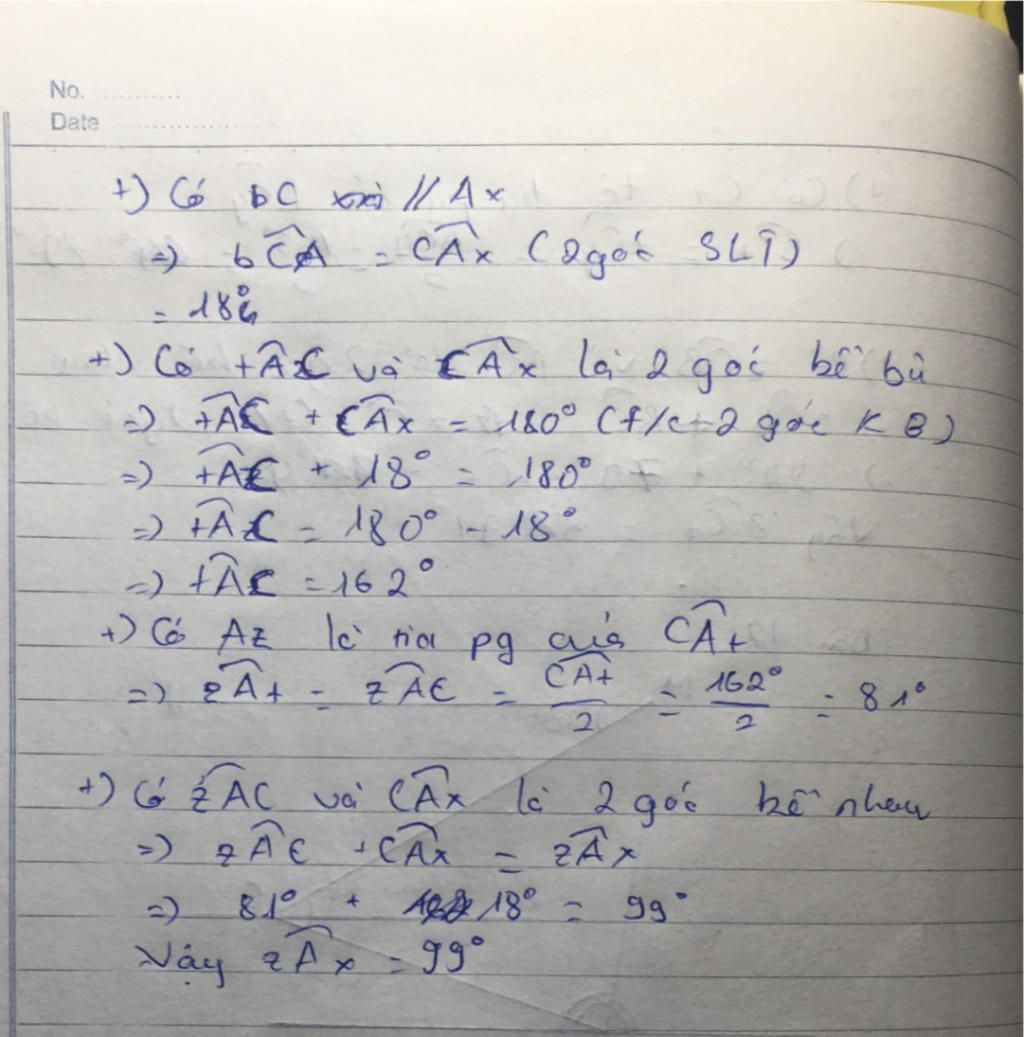 No.
Date
+) Có bC // Ax
=> bĈA = CÂx (2 góc SLT)
= 18°
+) Có tÂC và CÂx là 2 góc kề bù
=> tÂC + CÂx = 180° (t/c 2 góc KB)
=> tÂC + 18° = 180°
=> tÂC = 180° - 18°
=> tÂC = 162°
+) Có Az là tia pg của CÂt
=> zÂt = zÂC = CÂt/2 = 162°/2 = 81°
+) Có zÂC và CÂx là 2 góc kề nhau
=> zÂC + CÂx = zÂx
=> 81° + 18° = 99°
Vậy zÂx = 99°